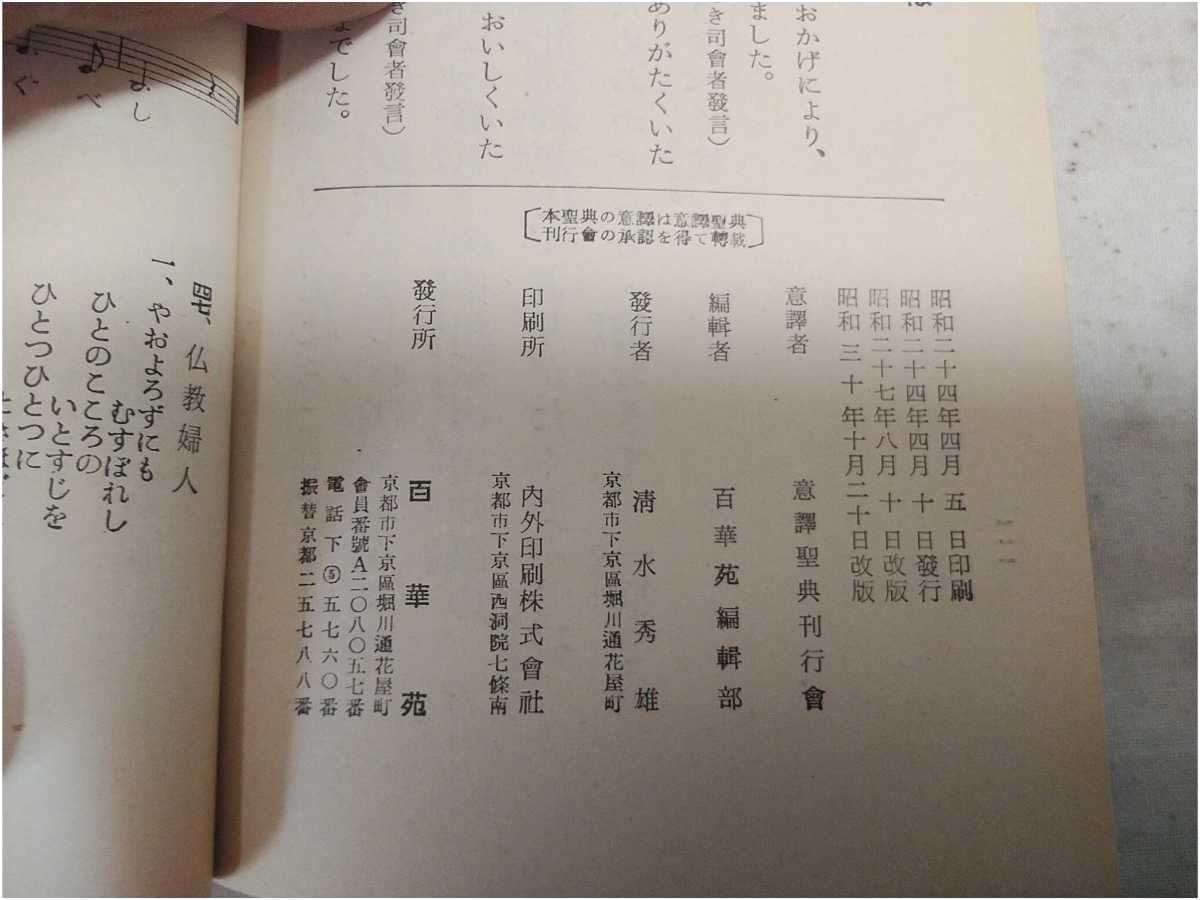 おかげにより、
ました。
き司會者發言）
ありがたくいた
おいしくいた
き司會者發言）
までした。
本聖典の意譯は意譯聖典
刊行會の承認を得て轉載
昭和二十四年四月 五 日印刷
昭和二十四年四月 十 日發行
昭和二十七年八月 十 日改版
昭和 三 十 年十月二十日改版
意譯者 意譯聖典刊行會
編輯者 百華苑編輯部
發行者 淸水秀雄
京都市下京區堀川通花屋町
印刷所 內外印刷株式會社
京都市下京區西洞院七條南
發行所 百華苑
京都市下京區堀川通花屋町
會員番號A二〇八〇五七番
電話下⑤五七六〇番
振替京都二五七八八番
し
べ
ぐ
四七、仏教婦人
一、やおよろずにも
むすぼれし
ひとのこころの
いとすじを
ひとつひとつに